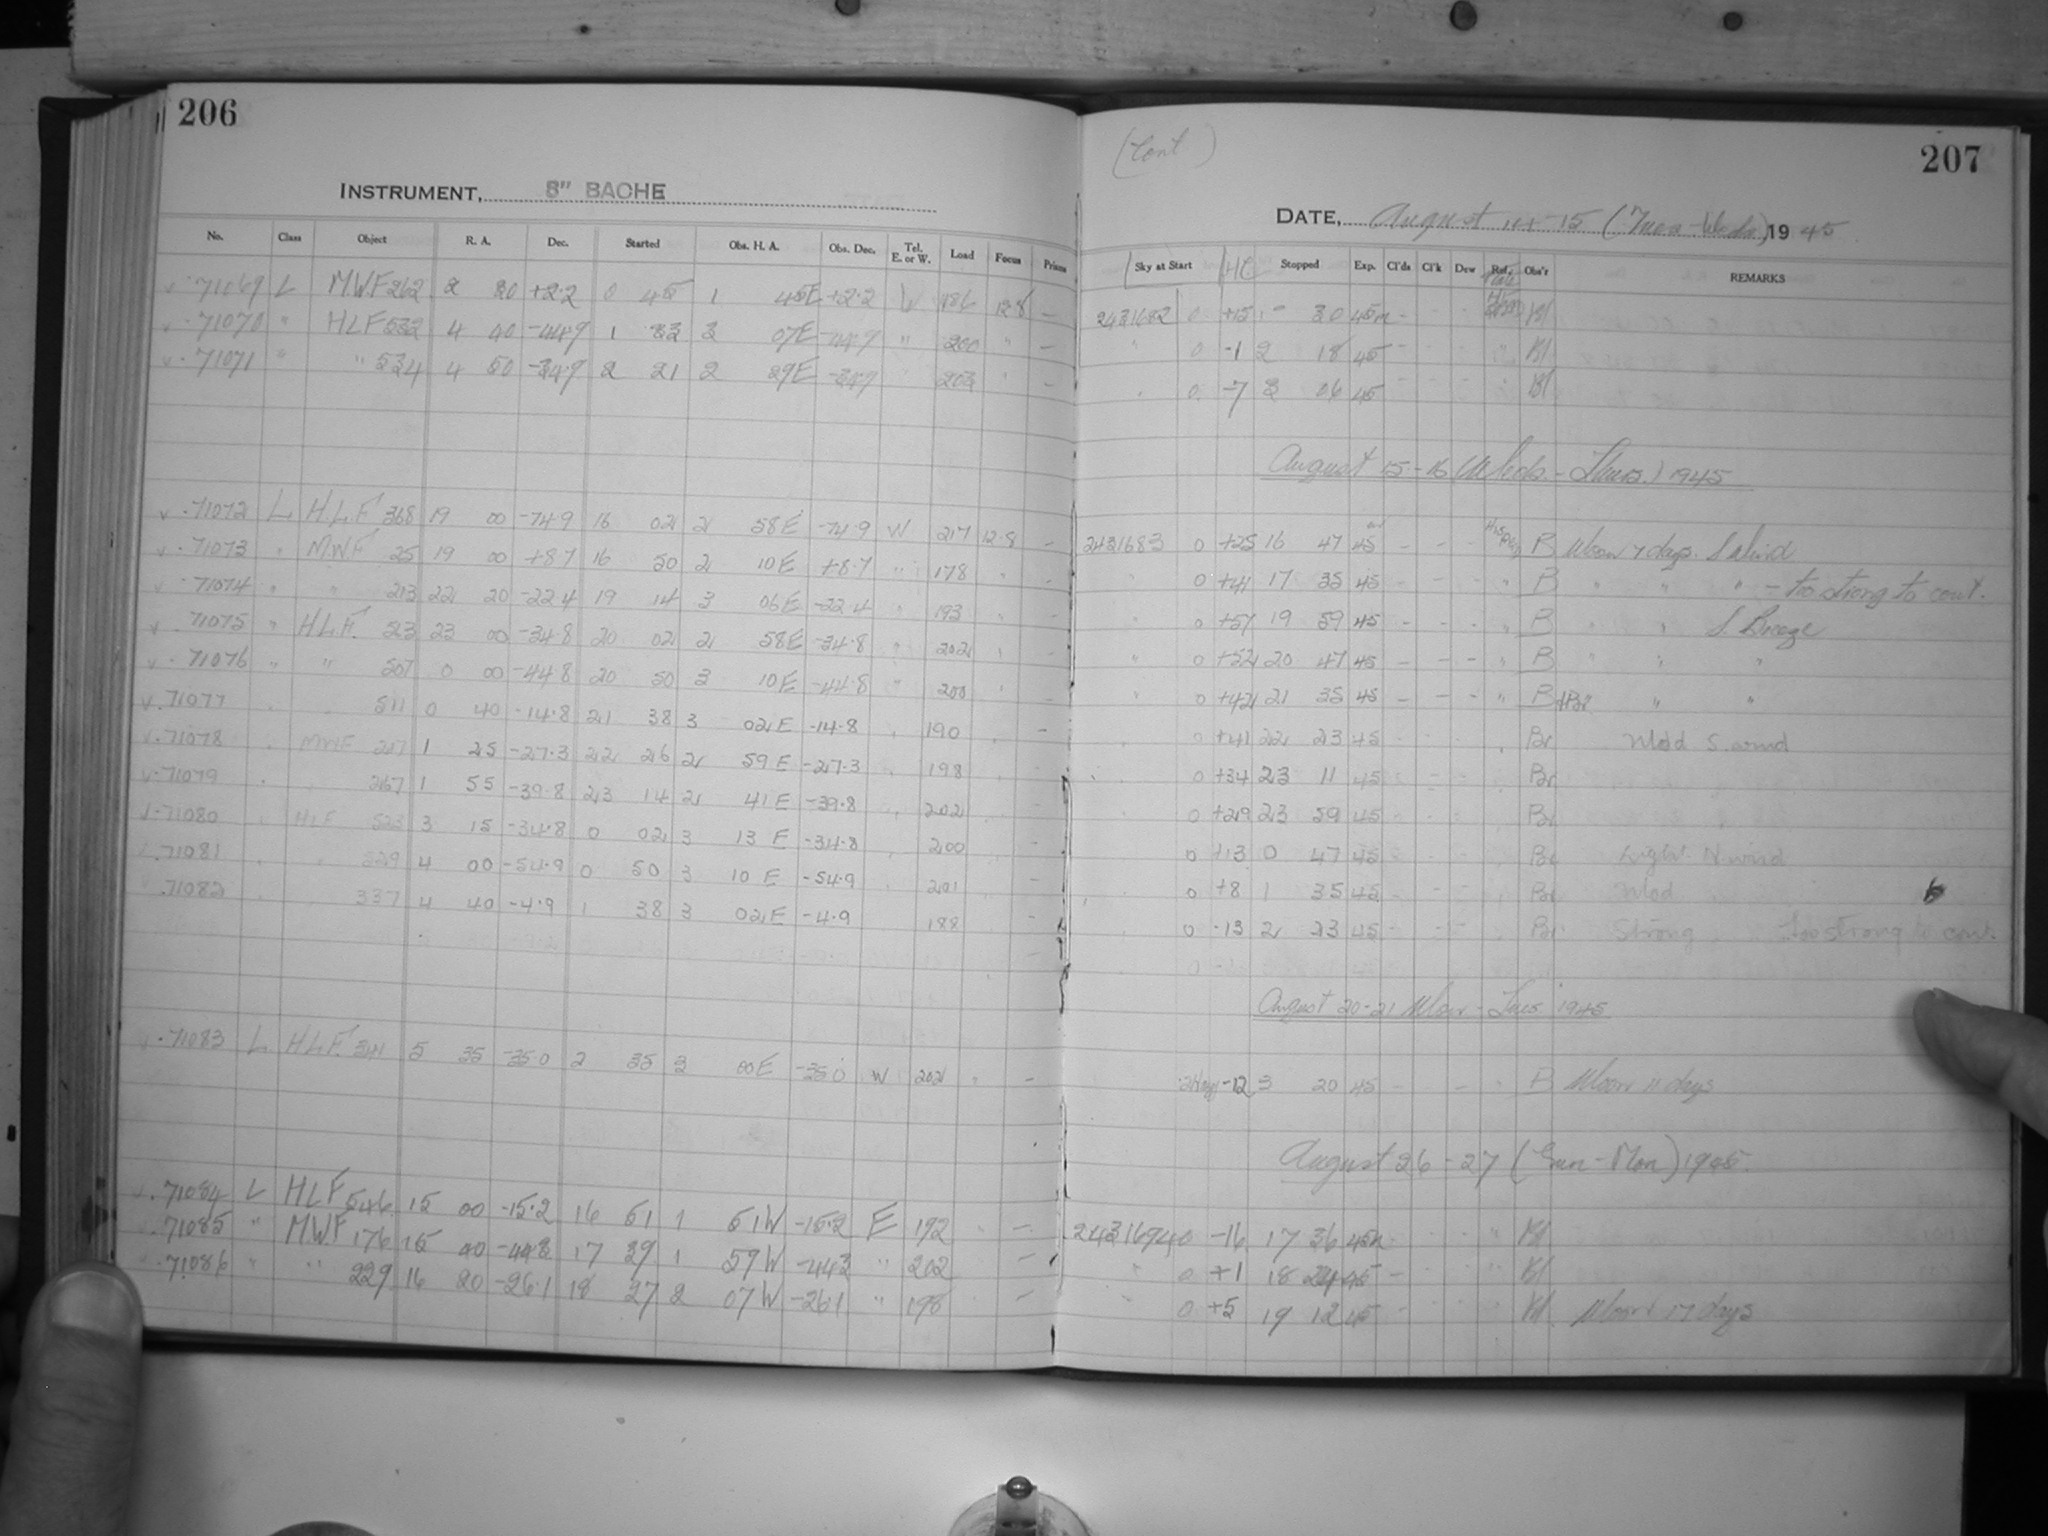 206
INSTRUMENT, 8" BACHE
No. Class Object R. A. Dec. Started Obs. H. A. Obs. Dec. Tel. E. or W. Load Focus Prism
71069 L MWF 262 2 20 +2.2 0 45 1 45E +2.2 W 186 12.8 –
71070 " HLF 532 4 40 -44.9 1 33 3 07E -44.9 " 200 " –
71071 " " 534 4 50 -34.9 2 21 2 29E -34.9 203 –
71072 L H.L.F. 368 19 00 -74.9 16 02 2 58E -74.9 W 217 12.8 –
71073 " M.W.F. 25 19 00 +8.7 16 50 2 10E +8.7 " 178 " –
71074 " " 213 22 20 -22.4 19 14 3 06E -22.4 " 193 " –
71075 " H.L.F. 513 23 00 -34.8 20 02 2 58E -34.8 " 202 " –
71076 " " 507 0 00 -44.8 20 50 3 10E -44.8 " 200 –
71077 511 0 40 -14.8 21 38 3 02E -14.8 190 –
71078 MWF 217 1 25 -27.3 22 26 2 59E -27.3 198 –
71079 267 1 55 -39.8 23 14 2 41E -39.8 202 –
71080 HLF 523 3 15 -34.8 0 02 3 13 E -34.8 200 –
71081 529 4 00 -54.9 0 50 3 10 E -54.9 201 –
71082 337 4 40 -4.9 1 38 3 02E -4.9 188 –
71083 L H.L.F. 341 5 35 -35.0 2 35 3 00E -35.0 W 202 –
71084 L HLF 546 15 00 -15.2 16 51 1 51W -15.2 E 192 –
71085 " MWF 176 15 40 -44.3 17 39 1 59W -44.3 " 202 –
71086 " " 229 16 20 -26.1 18 27 2 07W -26.1 " 198 –
(Cont)
207
DATE, August 14-15 (Tues-Weds) 1945
Sky at Start Stopped Exp. Cl'ds Cl'k Dew Ref. Obs'r REMARKS
2431682 0 +15 1 30 45m
0 -1 2 18 45 Bl
0 -7 3 06 45 Bl
August 15-16 (Weds.-Thurs.) 1945
2431683 0 +25 16 47 45 – – – B Moon 7 days. S. Wind
0 +41 17 35 45 – – – " B " " " – too strong to cont.
0 +57 19 59 45 – – – " B " " S. Breeze
0 +52 20 47 45 – – – " B " " "
0 +42 21 35 45 – – – " B+Br " "
0 +41 22 23 45 Br Mod S. wind
0 +34 23 11 45 Br
0 +29 23 59 45 Br
0 +13 0 47 45 Br Light N wind
0 +8 1 35 45 Br Mod
0 -13 2 23 45 Br Strong " Too strong to cont.
August 20-21 Mon-Tues 1945
-12 3 20 45 – – " B Moon 11 days
August 26-27 (Sun-Mon) 1945
2431694 0 -16 17 36 45m " Bl
0 +1 18 24 45 – " Bl
0 +5 19 12 45 – " Bl Moon 17 days